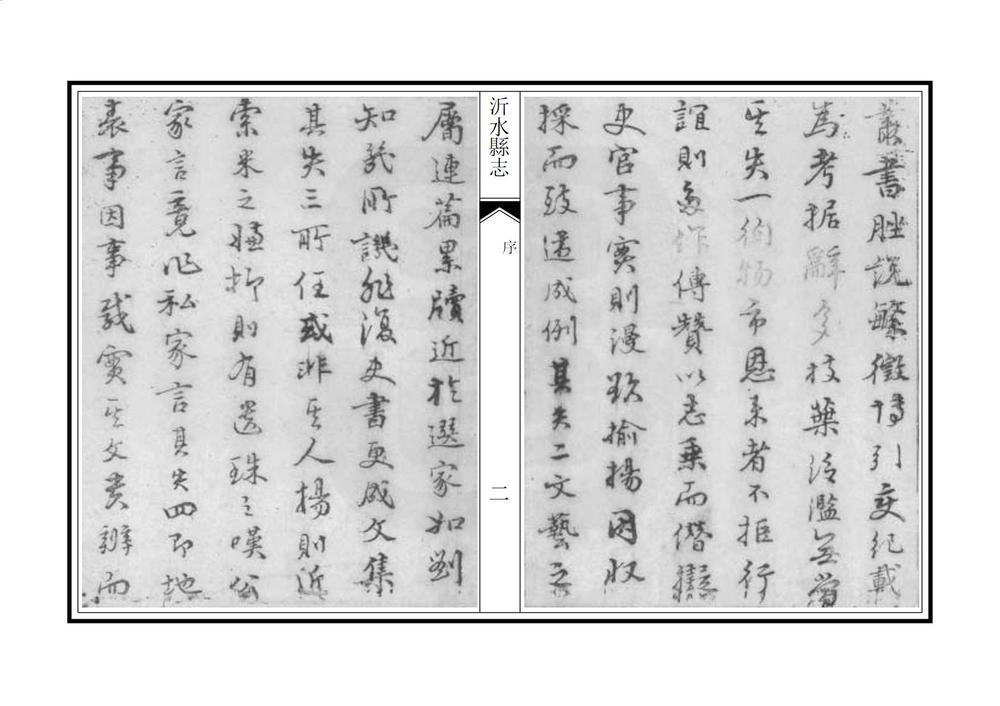 叢書脞說繁徵博引文紀載
為考据辭多枝葉泛濫無當
其失一徇物市恩來者不拒行
誼則多作傳贊以志乘而僭擬
史官事實則漫欺揄揚因収
採而致遂成例其失二文藝之
沂水縣志
序
二
屬連篇累牘近於選家如劉
知幾所譏非復史書更成文集
其失三所任或非其人揚則近
索米之嫌抑則有遺珠之嘆公
家言竟作私家言其失四即地
表事因事載實其文貴辨而